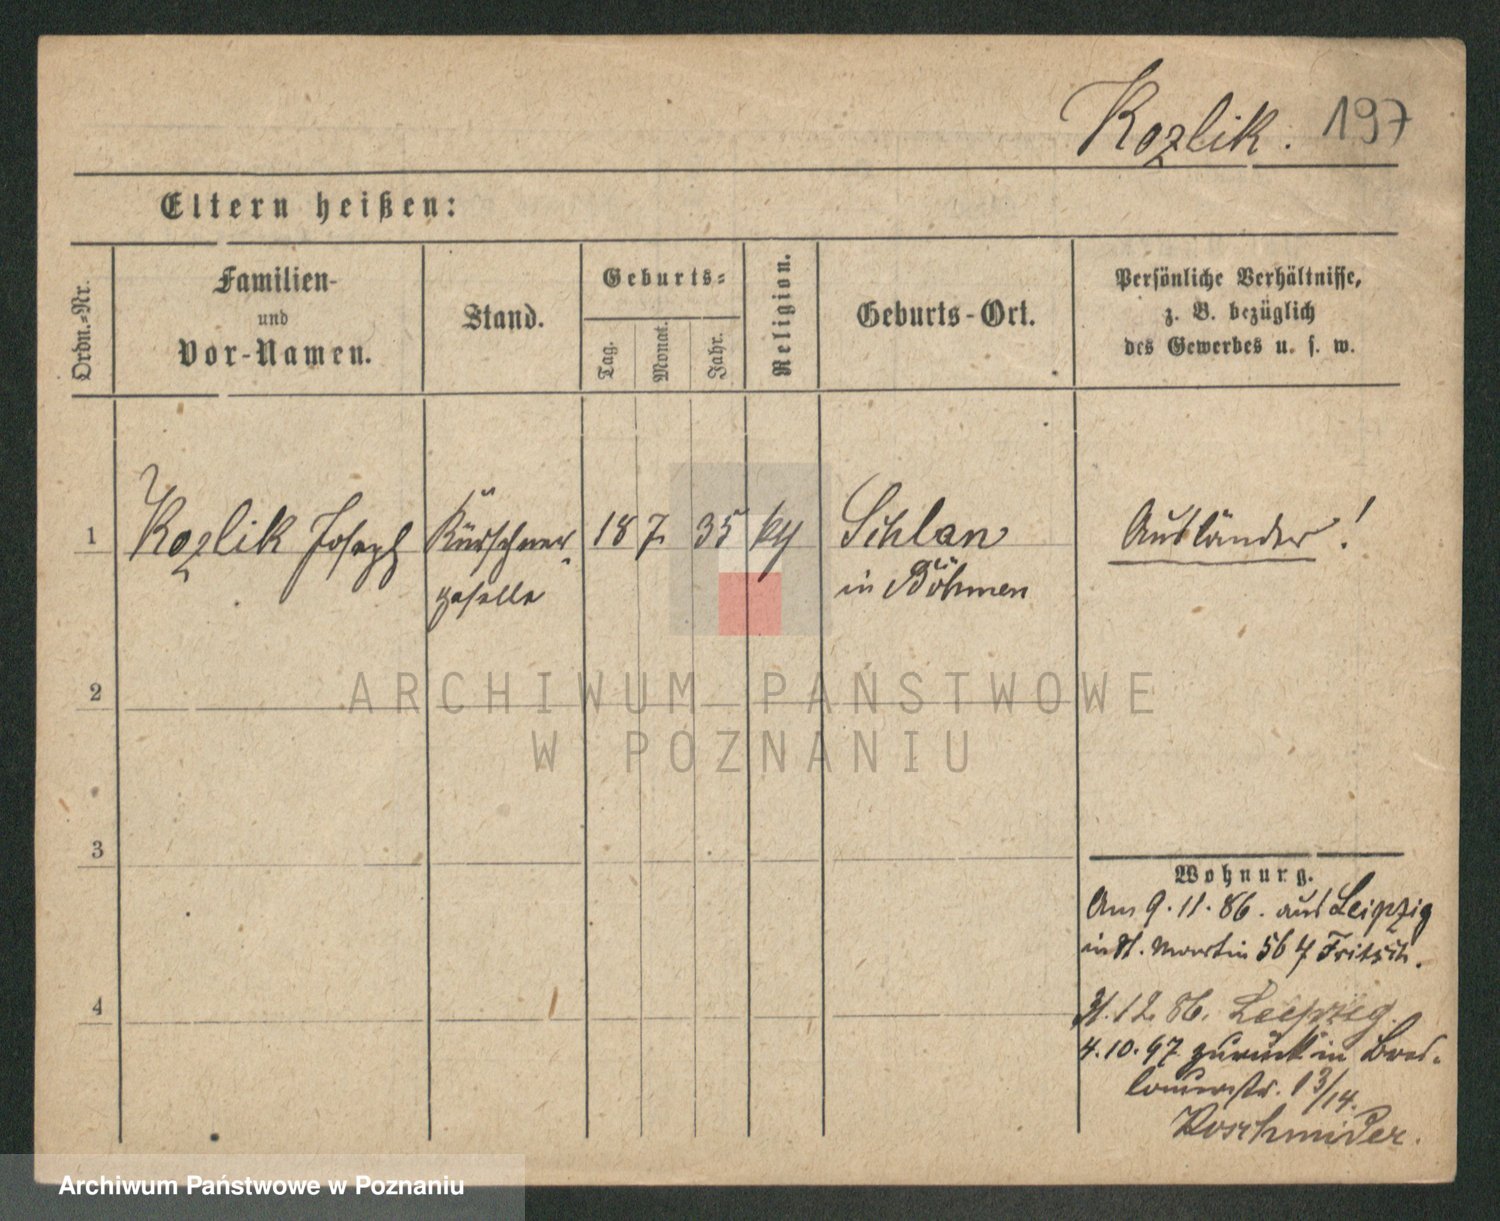 Kozlik. 197
Eltern heißen:
Ordn.-Nr.
Familien-
und
Vor-Namen.
Stand.
Geburts-
Tag.
Monat.
Jahr.
Religion.
Geburts-Ort.
Persönliche Verhältnisse,
z. B. bezüglich
des Gewerbes u. s. w.
1 Kozlik Joseph Kürschner- 18 7. 35 Schlan Ausländer!
geselle in Böhmen
2
3
4
Wohnung.
Am 9.11.86. aus Leipzig
in St. Martin 56 Fritsch.
31.12.86. Leipzig.
4.10.97 zurück in Bres-
lauerstr. 13/14.
ARCHIWUM PAŃSTWOWE
W POZNANIU
Archiwum Państwowe w Poznaniu